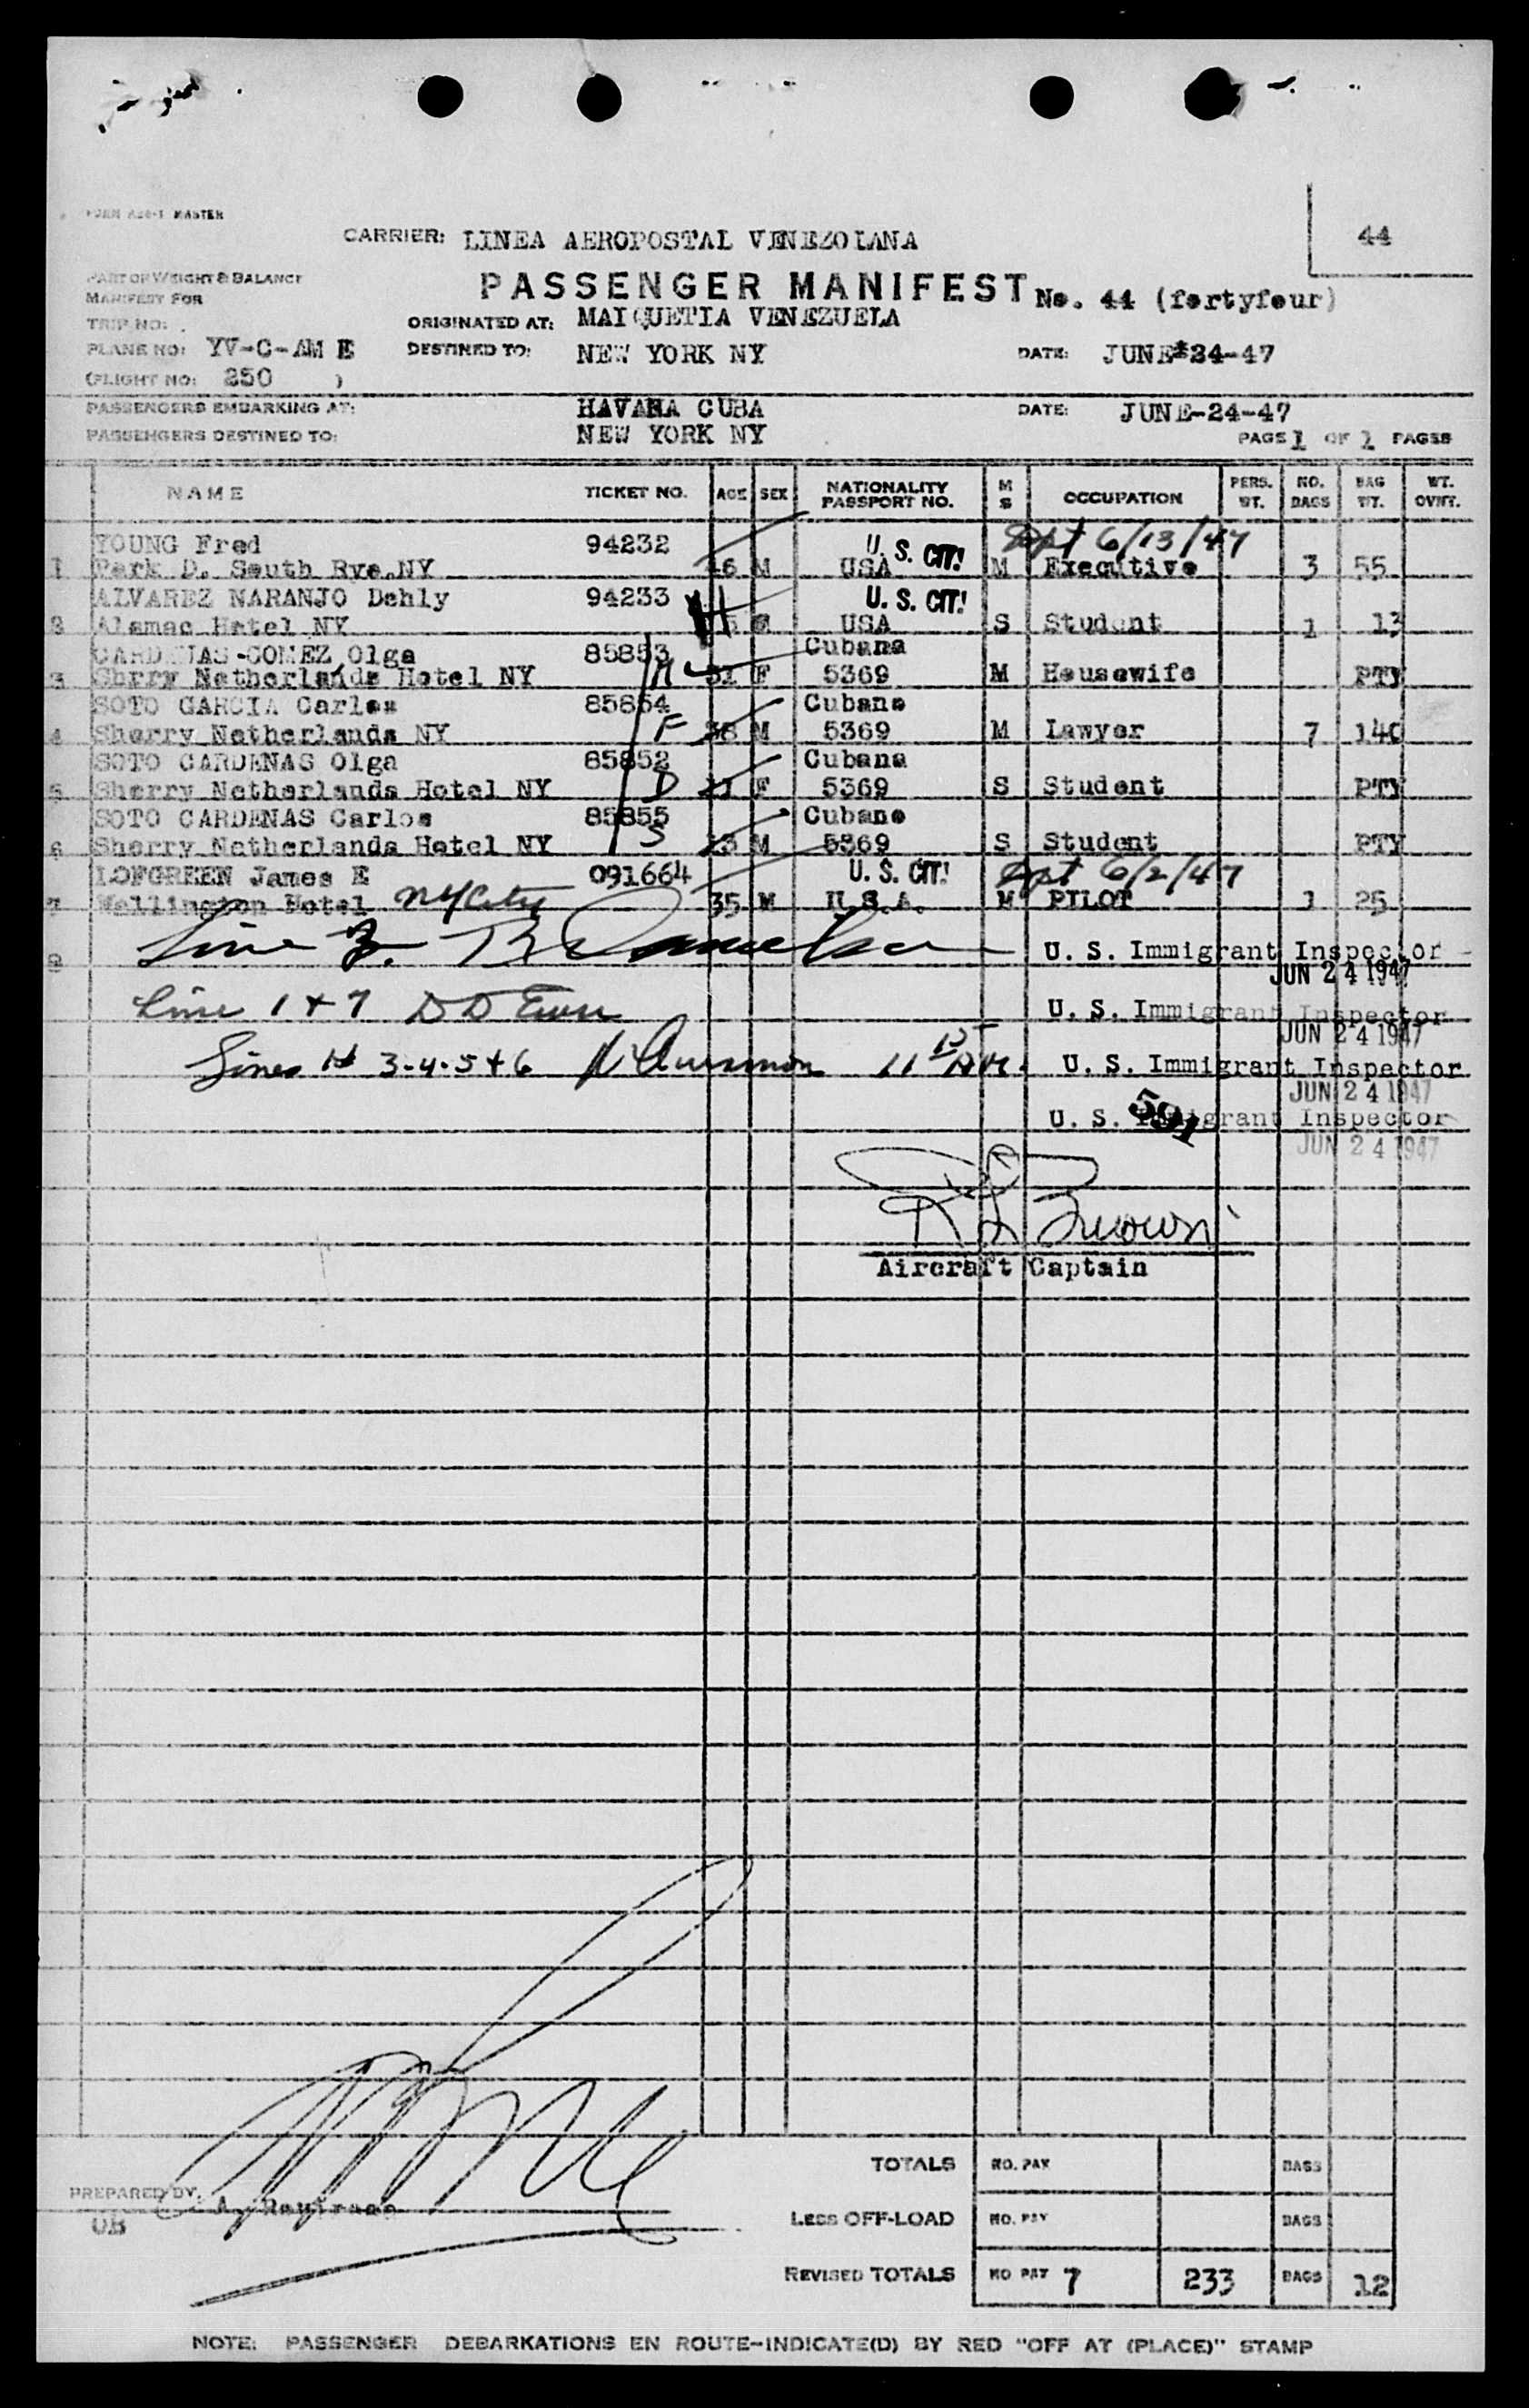 FORM A20-1 MASTER
CARRIER: LINEA AEROPOSTAL VENEZOLANA
44
PART OF WEIGHT & BALANCE
MANIFEST FOR
PASSENGER MANIFEST No. 44 (fortyfour)
TRIP NO:
ORIGINATED AT: MAIQUETIA VENEZUELA
PLANE NO: YV-C-AM E
DESTINED TO: NEW YORK NY
DATE: JUNE 24-47
(FLIGHT NO: 250 )
PASSENGERS EMBARKING AT: HAVANA CUBA
DATE: JUNE-24-47
PASSENGERS DESTINED TO: NEW YORK NY
PAGE 1 OF 1 PAGES
NAME TICKET NO. AGE SEX NATIONALITY PASSPORT NO. M S OCCUPATION PERS. WT. NO. BAGS BAG WT. WT. OVWT.
YOUNG Fred 94232 U. S. CIT! Dpt 6/13/47
1 Park D. South Rye.NY 46 M USA M Executive 3 55
ALVAREZ NARANJO Dehly 94233 U. S. CIT!
2 Alamac Hotel NY USA S Student 1 13
CARDENAS-GOMEZ Olga 85853 Cubana
3 Sherry Netherlands Hotel NY M 31 F 5369 M Housewife PTY
SOTO GARCIA Carlos 85854 Cubano
4 Sherry Netherlands NY F 38 M 5369 M Lawyer 7 140
SOTO CARDENAS Olga 85852 Cubana
5 Sherry Netherlands Hotel NY D 11 F 5369 S Student PTY
SOTO CARDENAS Carlos 85855 Cubano
6 Sherry Netherlands Hotel NY S 13 M 5369 S Student PTY
LOFGREEN James E 091664 U. S. CIT! Dpt 6/2/47
7 Wellington Hotel NYCity 35 M U.S.A. M PILOT 1 25
Line 2. U. S. Immigrant Inspector
JUN 24 1947
Line 1 + 7 U. S. Immigrant Inspector
JUN 24 1947
Lines 3-4-5+6 11 15 AM. U. S. Immigrant Inspector
JUN 24 1947
591
U. S. Immigrant Inspector
JUN 24 1947
R L Brown
Aircraft Captain
TOTALS NO. PAX BAGS
PREPARED BY,
LESS OFF-LOAD NO. PAY BAGS
REVISED TOTALS NO PAY 7 233 BAGS 12
NOTE: PASSENGER DEBARKATIONS EN ROUTE-INDICATE(D) BY RED "OFF AT (PLACE)" STAMP